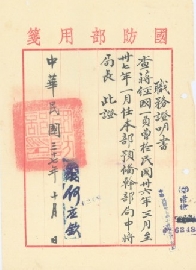 國防部用箋
職務證明書
查蔣經國一員曾於民國卅六年三月至
卅七年一月任本部預備幹部局中將
局長 此證
中華民國三十七年十月 日